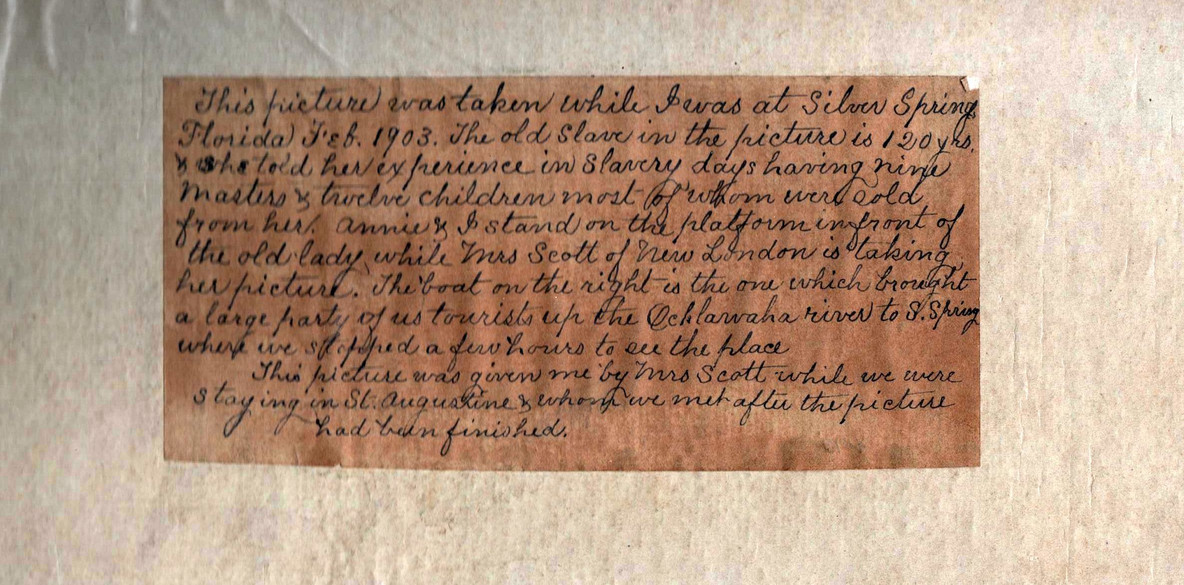 This picture was taken while I was at Silver Spring,
Florida Feb. 1903. The old Slave in the picture is 120 yrs.
& she told her experience in Slavery days having nine
Masters & twelve children most of whom were sold
from her. Annie & I stand on the platform in front of
the old lady while Mrs Scott of New London is taking
her picture. The boat on the right is the one which brought
a large party of us tourists up the Ocklawaha river to S. Spring
where we stopped a few hours to see the place
This picture was given me by Mrs Scott while we were
staying in St. Augustine & whom we met after the picture
had been finished.